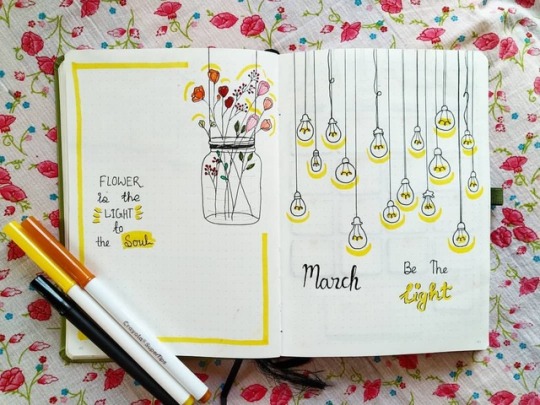 FLOWER
is the
LIGHT
to
the Soul
Crayola SuperTips
March
Be The
Light